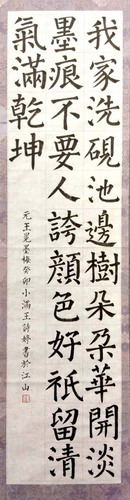 我家洗硯池邊樹朵朵華開淡
墨痕不要人誇顏色好祇留清
氣滿乾坤
元王冕墨梅癸卯小滿王詩婷書於江山